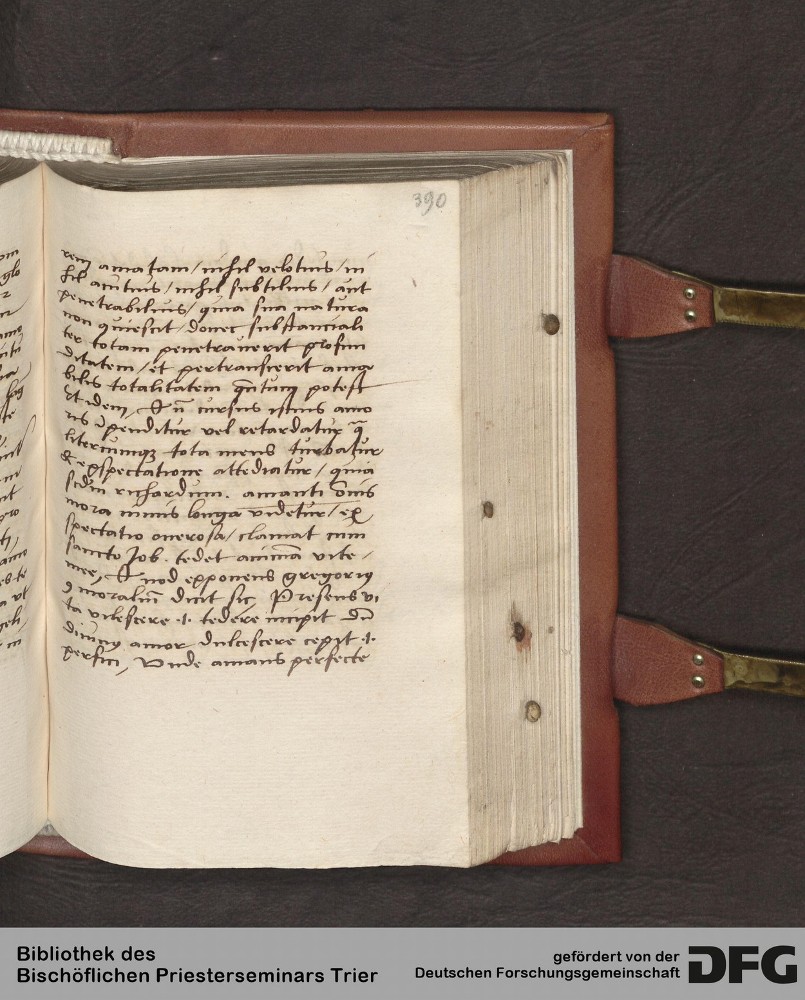 390
rem amatam / nihil velotius / ni
hil acutius / nihil subtilius / aut
penetrabilius / quia sua natura
non quiescit / donec substanciali
ter totam penetraverit profun
ditatem / et pertransierit ama
bilis totalitatem qntum potest
Et idem, Et
cursus istius amo
ris
penditur vel retardatur
litercumqȝ tota mens turbatur
& expectatione attediatur / quia
scdm richardum. amanti omis
mora nimis longa videtur / ex
spectatio onerosa / clamat cum
sancto Job. tedet animā vite /
mee, Et
nod exponens gregoriꝰ
moraliū dicit sic, Presens vi
ta vilescere .i. tedere incipit dū
divinꝰ amor dulcescere cepit .i.
perfici, Unde amans perfecte
Bibliothek des
Bischöflichen Priesterseminars Trier
gefördert von der
Deutschen Forschungsgemeinschaft
DFG